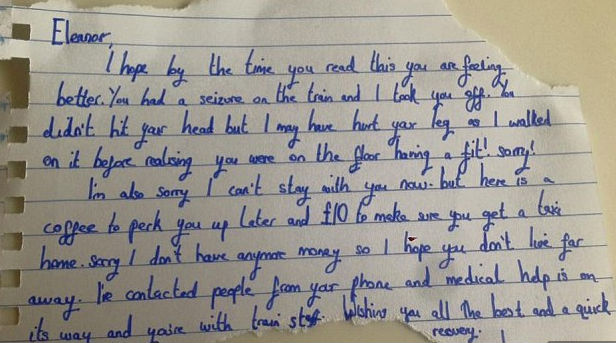 Eleanor,
I hope by the time you read this you are feeling
better. You had a seizure on the train and I took you off. You
didn't hit your head but I may have hurt your leg as I walked
on it before realising you were on the floor having a fit! sorry!
I'm also sorry I can't stay with you now. but here is a
coffee to perk you up later and £10 to make sure you get a taxi
home. Sorry I don't have anymore money so I hope you don't live far
away. I've contacted people from your phone and medical help is on
its way and you're with train staff. Wishing you all the best and a quick
recovery.